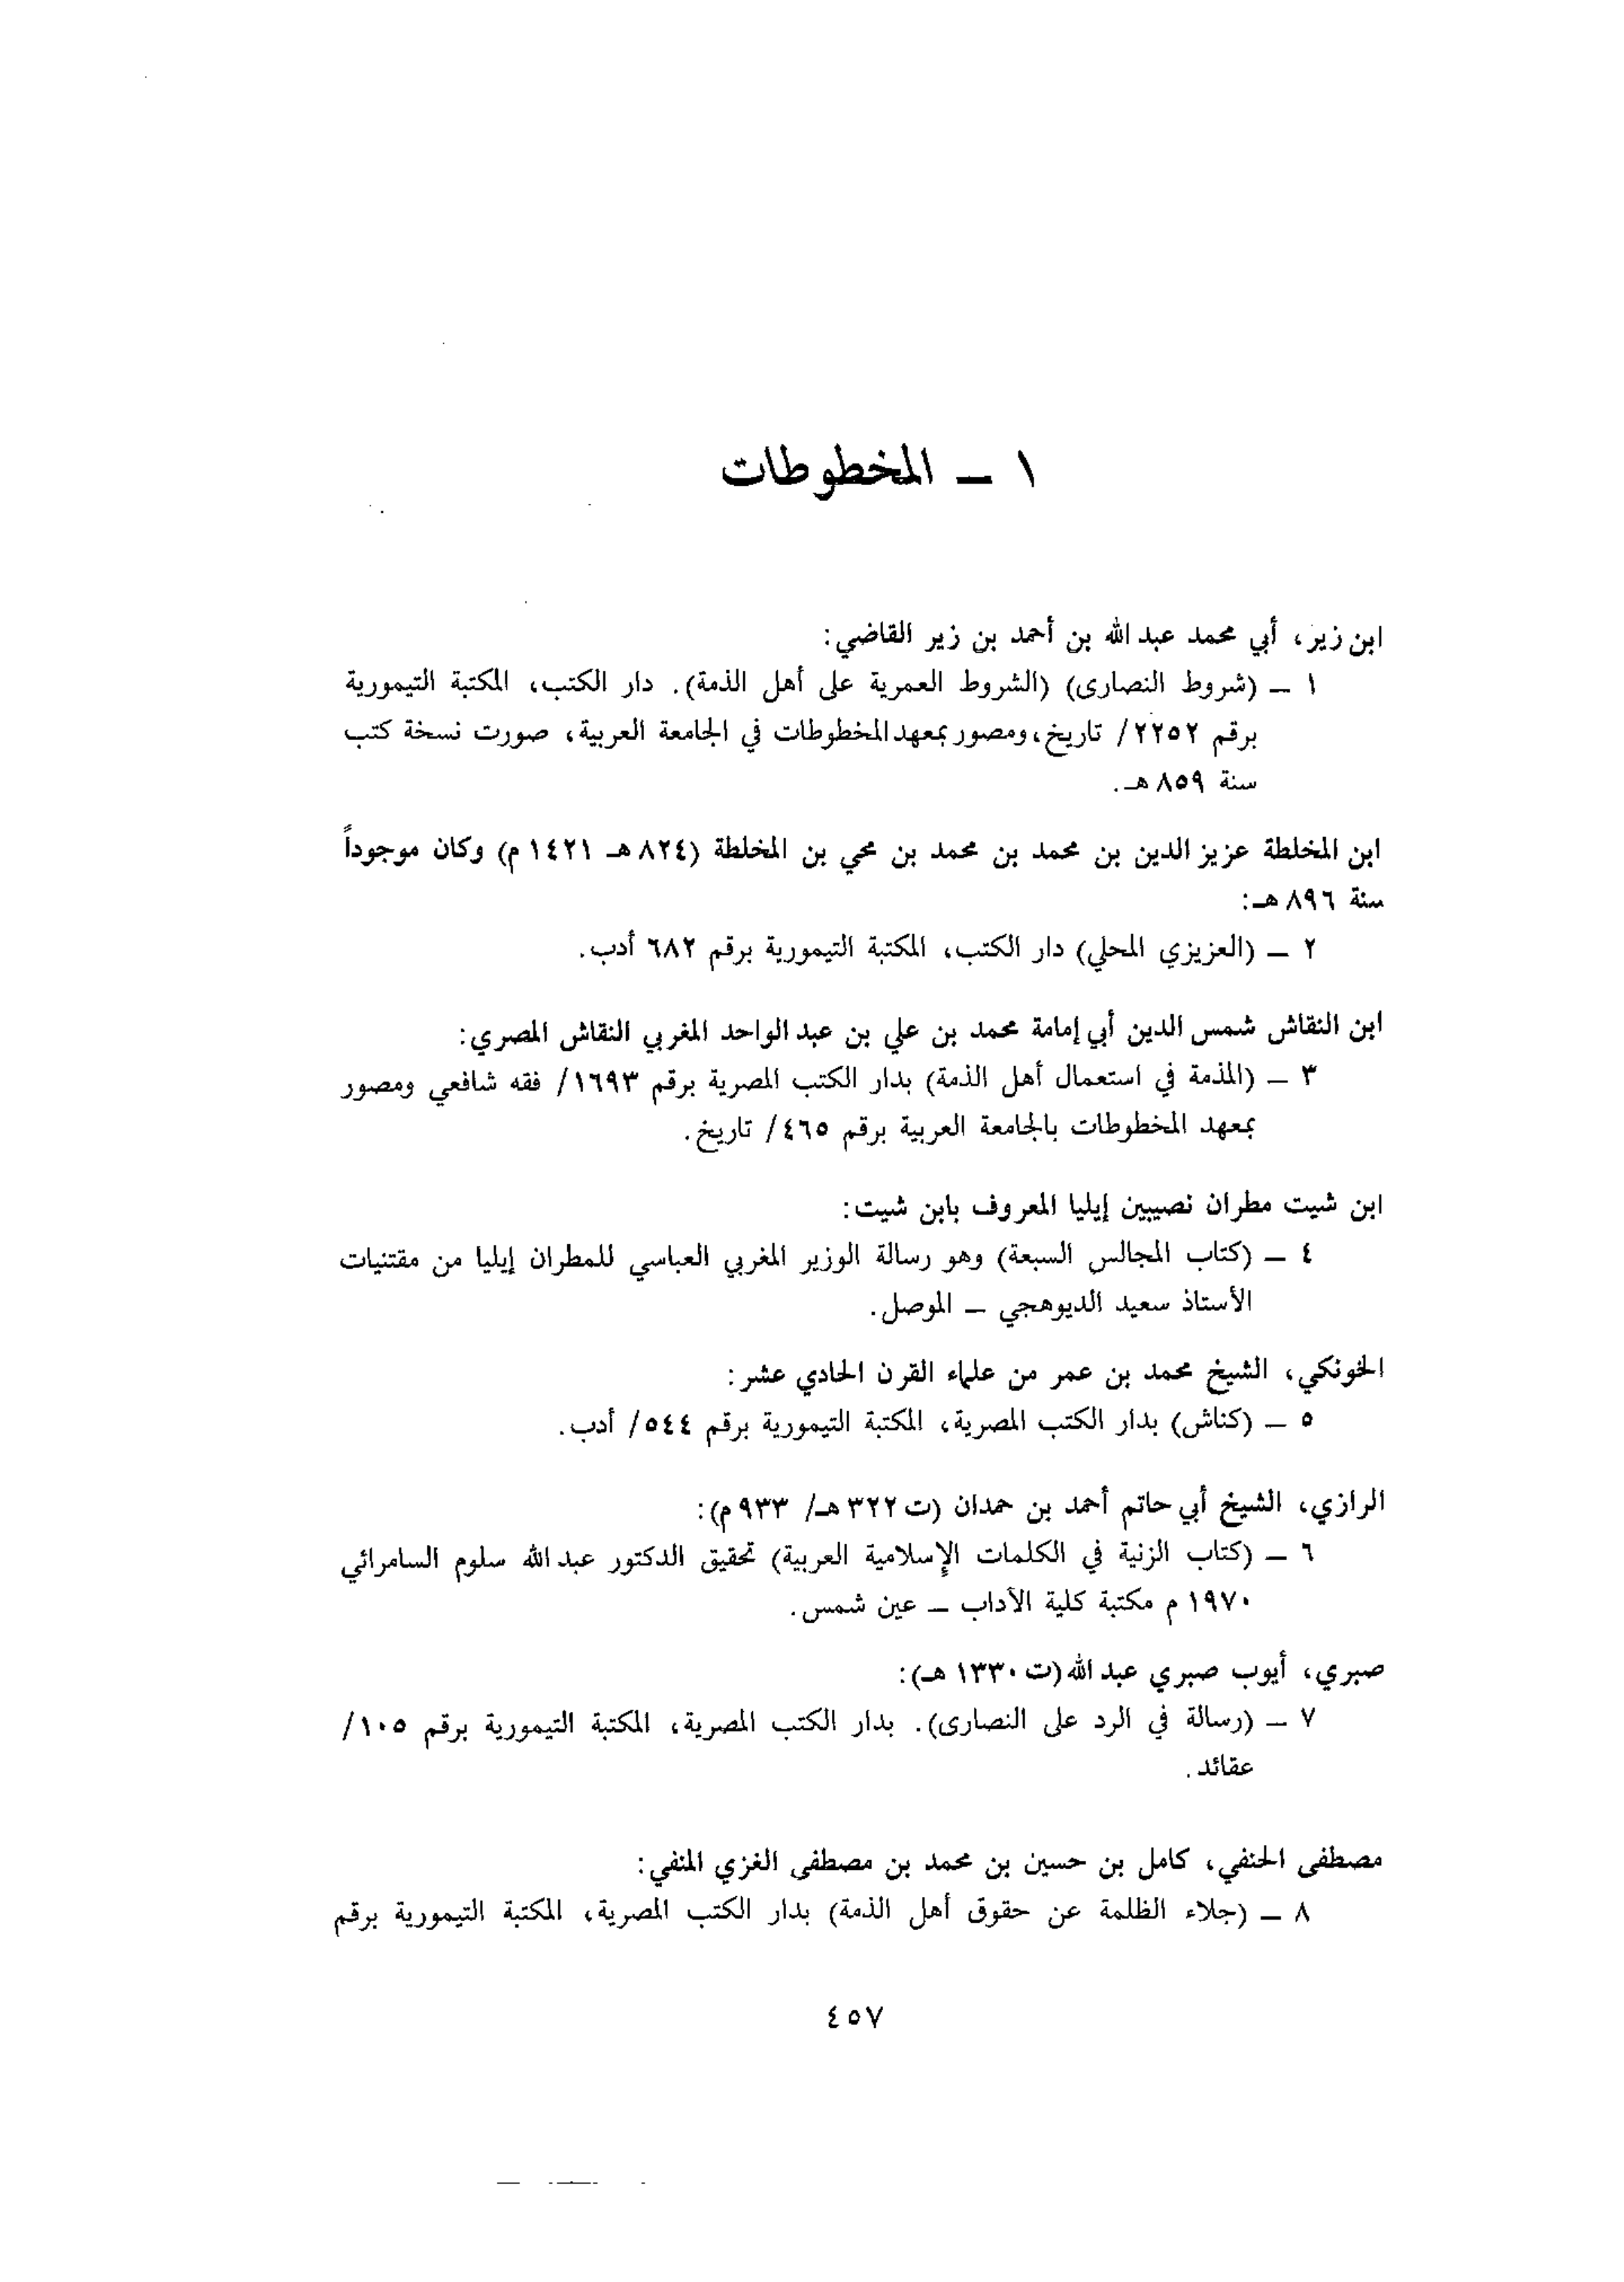 ١ ــ المخطوطات
ابن زير، أبي محمد عبد الله بن أحمد بن زير القاضي:
١ ــ (شروط النصارى) (الشروط العمرية على أهل الذمة). دار الكتب، المكتبة التيمورية
برقم ٢٢٥٢/ تاريخ، ومصور بمعهد المخطوطات في الجامعة العربية، صورت نسخة كتب
سنة ٨٥٩ هـ.
ابن المخلطة عزيز الدين بن محمد بن محمد بن محي بن المخلطة (٨٢٤ هـ ١٤٢١ م) وكان موجوداً
سنة ٨٩٦ هـ:
٢ ــ (العزيزي المحلي) دار الكتب، المكتبة التيمورية برقم ٦٨٢ أدب.
ابن النقاش شمس الدين أبي إمامة محمد بن علي بن عبد الواحد المغربي النقاش المصري:
٣ ــ (المذمة في استعمال أهل الذمة) بدار الكتب المصرية برقم ١٦٩٣/ فقه شافعي ومصور
بمعهد المخطوطات بالجامعة العربية برقم ٤٦٥/ تاريخ.
ابن شيت مطران نصيبين إيليا المعروف بابن شيت:
٤ ــ (كتاب المجالس السبعة) وهو رسالة الوزير المغربي العباسي للمطران إيليا من مقتنيات
الأستاذ سعيد الديوهجي ــ الموصل.
الخونكي، الشيخ محمد بن عمر من علماء القرن الحادي عشر:
٥ ــ (كناش) بدار الكتب المصرية، المكتبة التيمورية برقم ٥٤٤/ أدب.
الرازي، الشيخ أبي حاتم أحمد بن حمدان (ت ٣٢٢ هـ/ ٩٣٣ م):
٦ ــ (كتاب الزنية في الكلمات الإسلامية العربية) تحقيق الدكتور عبد الله سلوم السامرائي
١٩٧٠ م مكتبة كلية الآداب ــ عين شمس.
صبري، أيوب صبري عبد الله (ت ١٣٣٠ هـ):
٧ ــ (رسالة في الرد على النصارى). بدار الكتب المصرية، المكتبة التيمورية برقم ١٠٥/
عقائد.
مصطفى الحنفي، كامل بن حسين بن محمد بن مصطفى الغزي المنفي:
٨ ــ (جلاء الظلمة عن حقوق أهل الذمة) بدار الكتب المصرية، المكتبة التيمورية برقم
٤٥٧